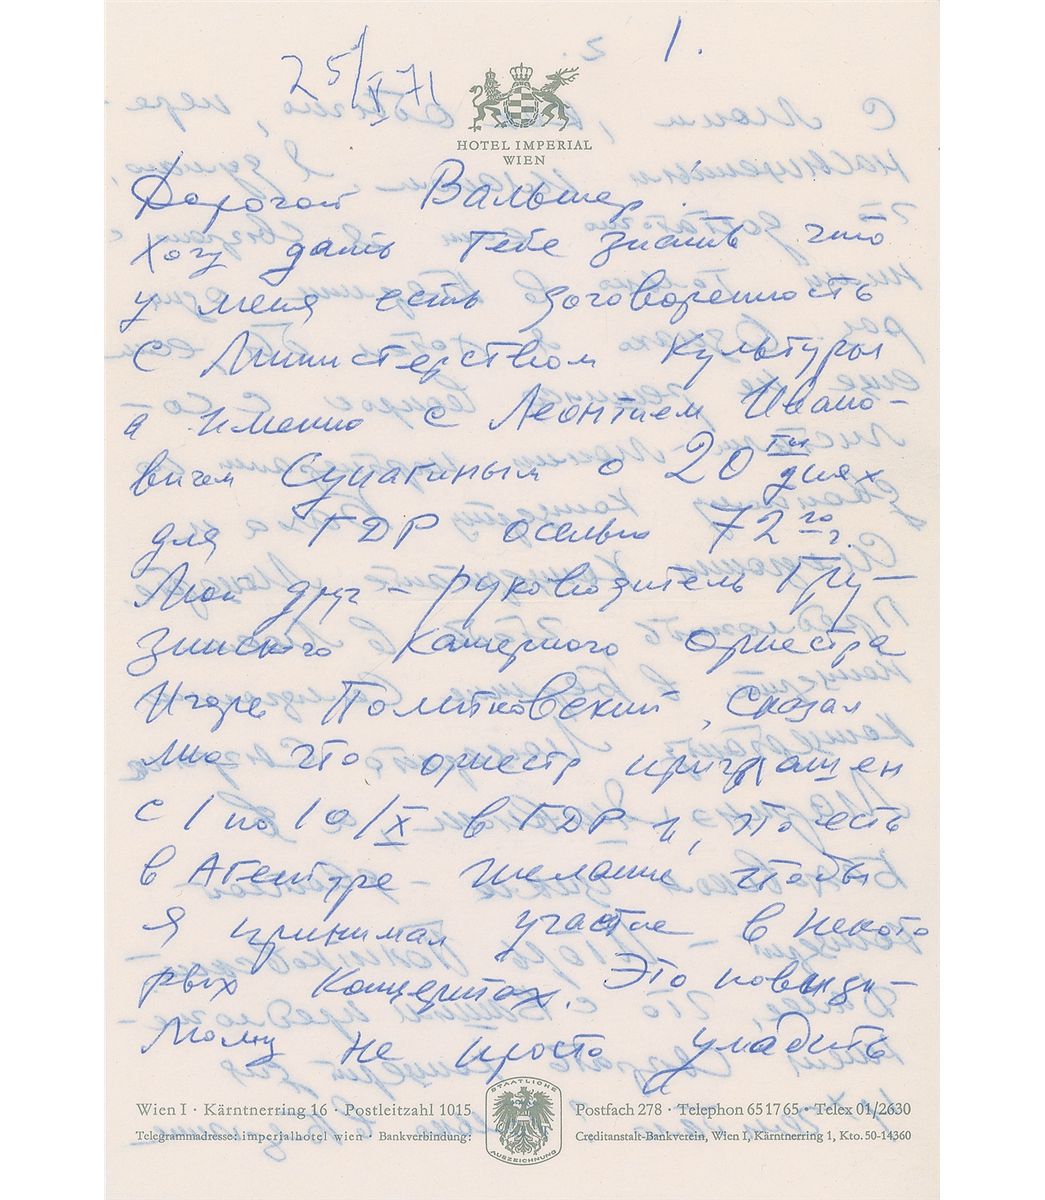 1.
25/X 71
HOTEL IMPERIAL
WIEN
Дорогой Вальтер.
Хочу дать Тебе знать что
у меня есть договоренность
с Министерством Культуры
а именно с Леонтием Ивано-
вичем Супагиным о 20ти днях
для ГДР осенью 72го г.
Мой друг – руководитель Гру-
зинского Камерного оркестра
Игорь Политковский, сказал
мне что оркестр приглашен
с 1 по 10/X в ГДР и, что есть
в Агентуре желание, чтобы
я принимал участие в некото
рых Концертах. Это повиди-
мому не просто уладить
STAATLICHE
AUSZEICHNUNG
Wien I · Kärntnerring 16 · Postleitzahl 1015
Postfach 278 · Telephon 65 17 65 · Telex 01/2630
Telegrammadresse: imperialhotel wien · Bankverbindung:
Creditanstalt-Bankverein, Wien I, Kärntnerring 1, Kto. 50-14360